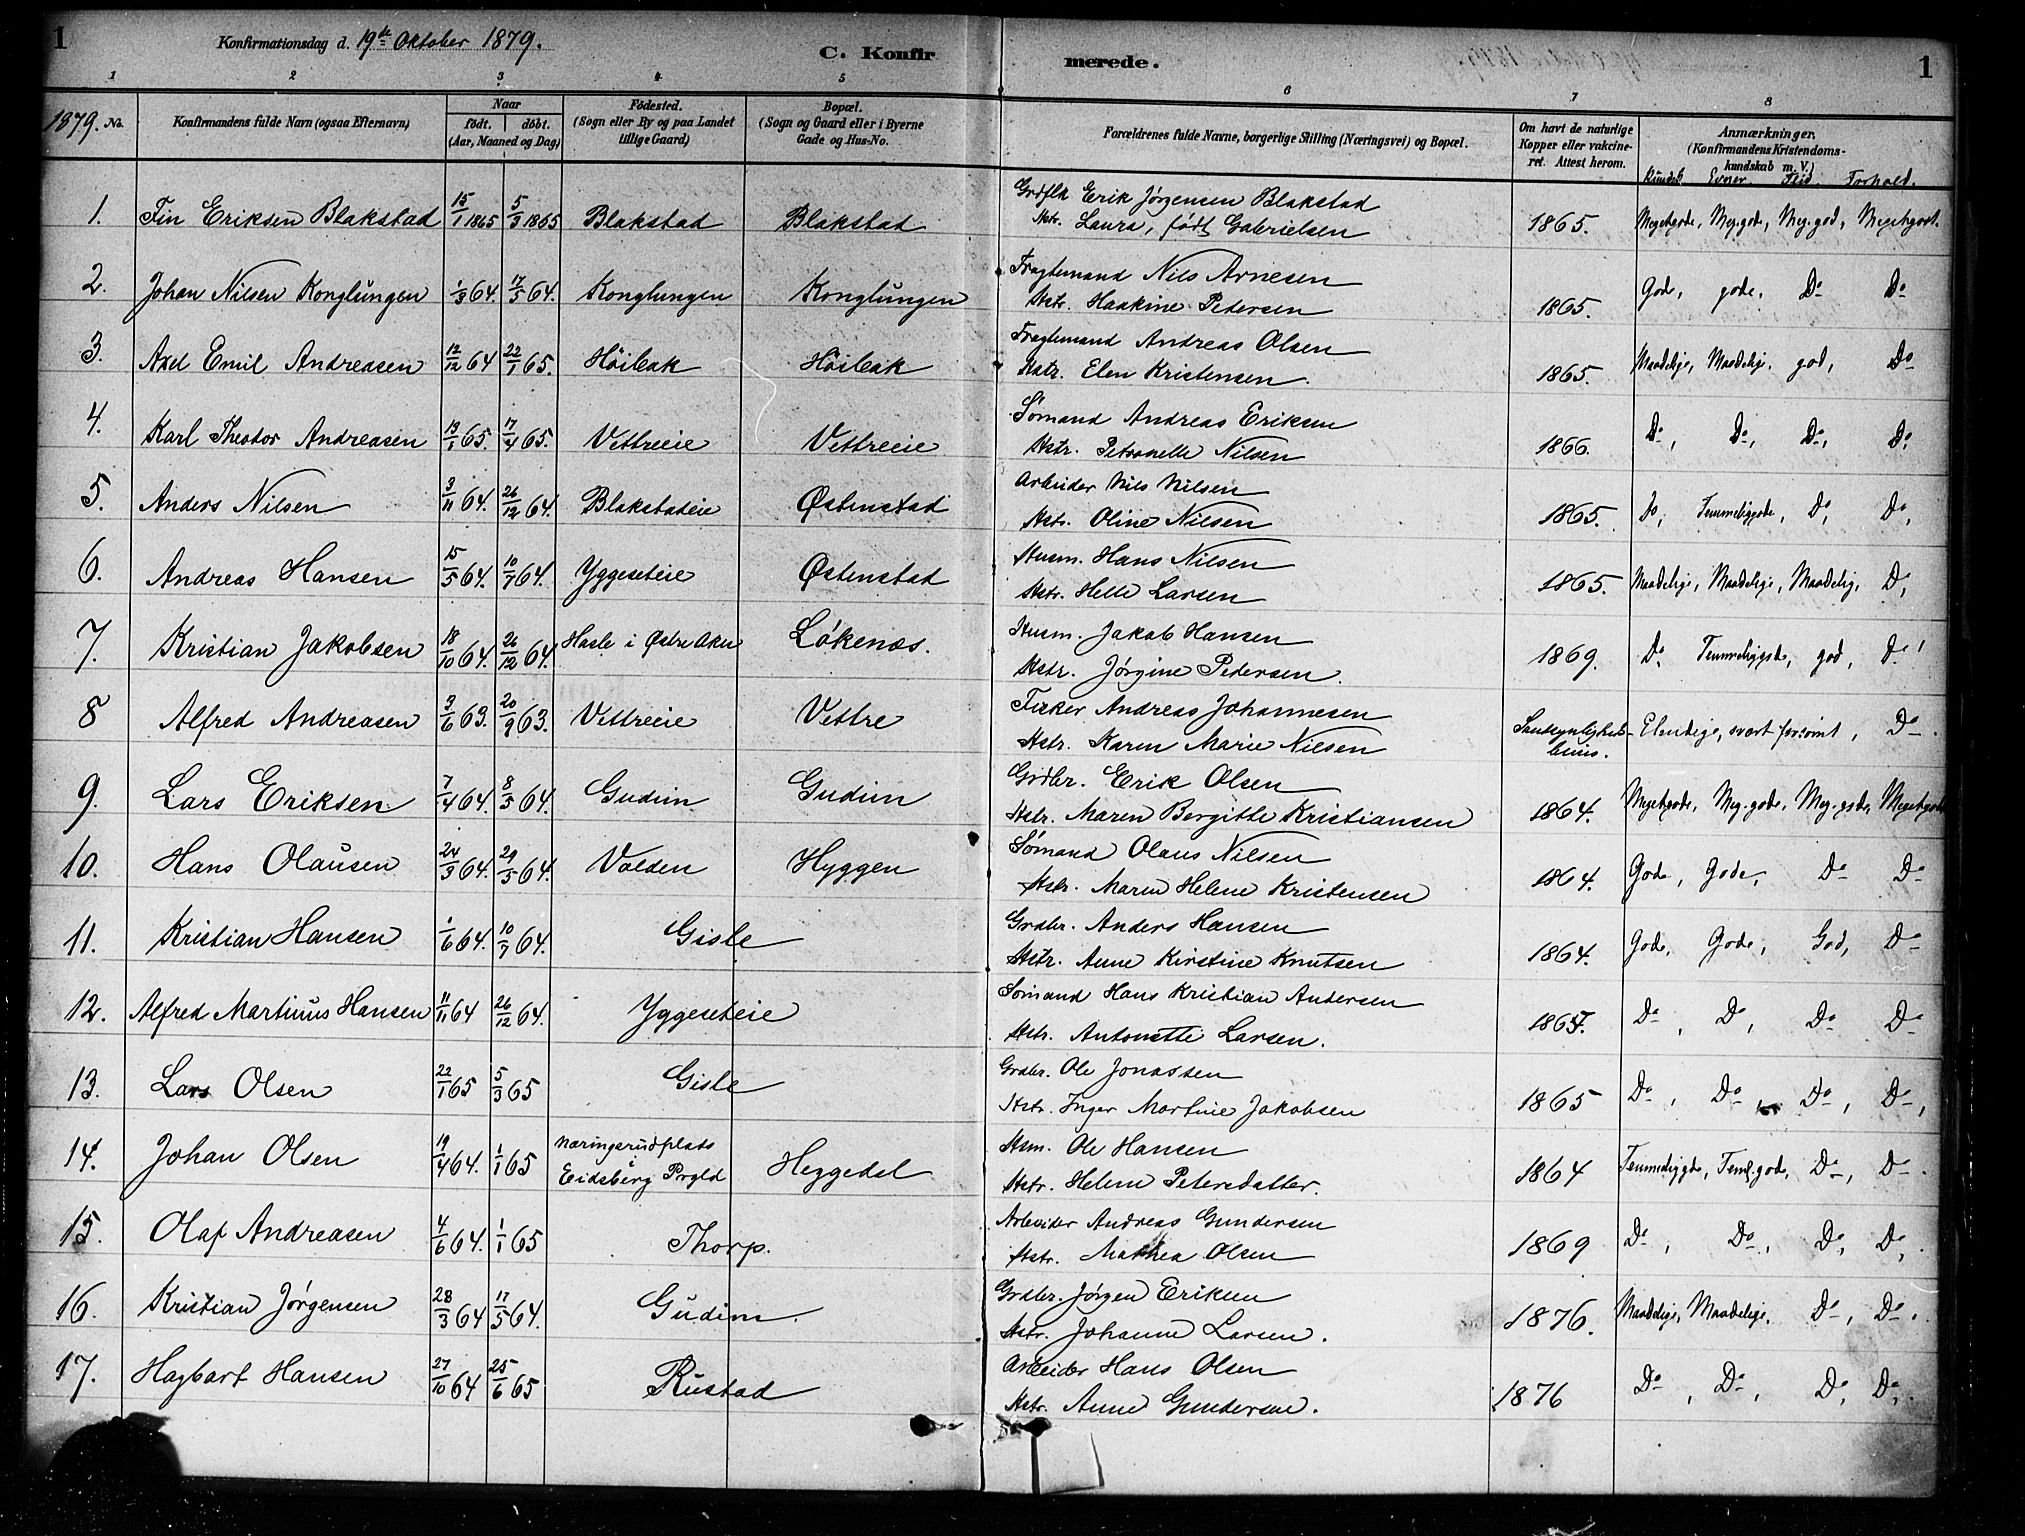 1
Konfirmationsdag d. 19de Oktober 1879.
C. Konfirmerede.
1
1 2 3 4 5 6 7 8
1879. No.
Konfirmandens fulde Navn (ogsaa Efternavn)
Naar
født. døbt.
(Aar, Maaned og Dag)
Fødested.
(Sogn eller By og paa Landet
tillige Gaard)
Bopæl.
(Sogn og Gaard eller i Byerne
Gade og Hus-No.
Forældrenes fulde Navne, borgerlige Stilling (Næringsvei) og Bopæl.
Om havt de naturlige
Kopper eller vakcine-
ret. Attest herom.
Anmærkninger.
(Konfirmandens Kristendoms-
kundskab m. V.)
Kundsk. Evner. Flid. Forhold.
1. Fin Eriksen Blakstad 15/1 1865 5/3 1865 Blakstad Blakstad Grdflk Erik Jørgensen Blakstad
Hstr. Laura, født Gabrielsen 1865. Megetgode, Meg.gode, Meg.god, Megetgodt.
2. Johan Nilsen Konglungen 1/3 64. 17/5 64. Konglungen Konglungen Fragtemand Nils Arnesen
Hstr. Haakine Petersen 1865. Gode, gode, Do Do
3. Axel Emil Andreasen 12/12 64 22/1 65. Höibak Höibak Fragtemand Andreas Olsen
Hstr. Elen Kristensen. 1865. Maadelige, Maadelige, god, Do
4. Karl Theodor Andreasen 13/1 65. 17/4 65. Vettreeie Vettreeie Sømand Andreas Eriksen
Hstr. Petronelle Nilsen 1866. Do, Do, Do, Do,
5. Anders Nilsen 3/11 64. 26/12 64. Blakstadeie Østenstad Arbeider Nils Nilsen
Hstr. Oline Nilsen 1865. Do, Temmeliggode, Do, Do,
6. Andreas Hansen 15/5 64. 10/7 64. Yggeseteie Østenstad Husm. Hans Nilsen
Hstr. Helle Larsen 1865. Maadelige, Maadelige, Maadelig, Do,
7. Kristian Jakobsen 18/10 64. 26/12 64. Hasle i Østre Aker Løkenæs. Husm. Jakob Hansen
Hstr. Jørgine Pedersen. 1869. Do Temmeliggode, god, Do
8 Alfred Andreasen 3/6 63. 20/9 63. Vettreeie Vettre Fisker Andreas Johannesen
Hstr. Karen Marie Nilsen Sandsynligheds-
bevis. Elendige, svært forsømt, Do.
9. Lars Eriksen 7/4 64. 8/5 64. Gudim Gudim Grdbr. Erik Olsen
Hstr. Maren Bergitte Kristiansen 1864. Megetgode, Meg.gode, Meg.gode, Megetgodt
10. Hans Olausen 24/3 64. 29/5 64. Valden Hyggen Sømand Olaus Nilsen
Hstr. Maren Helene Kristensen 1864. Gode, Gode, Do Do
11. Kristian Hansen 1/6 64. 10/7 64. Gisle Grdbr. Anders Hansen
Hstr. Anne Kirstine Knutsen 1864. Gode, Gode, God, Do
12. Alfred Martinus Hansen 11/11 64 26/12 64. Yggeseteie Sømand Hans Kristian Andersen
Hstr. Antonette Larsen. 1865. Do, Do, Do Do
13. Lars Olsen 22/1 65 5/3 65 Gisle Grdbr. Ole Jonassen
Hstr. Inger Martine Jakobsen 1865 Do, Do, Do, Do,
14. Johan Olsen 19/4 64. 1/1 65 Næringsrudplads
i
Eidsberg Prgld Heggedal Hsm. Ole Hansen
Hstr. Helene Petersdatter. 1864 Temmeliggde, Teml.gode, Do, Do.
15. Olaf Andreasen 4/6 64. 1/1 65 Thorp. Arbeider Andreas Gundersen
Hstr. Mathea Olsen 1869 Do, Do, Do, Do,
16. Kristian Jørgensen 28/3 64 17/5 64. Gudim. Grdbr. Jörgen Eriksen
Hstr. Johanne Larsen. 1876. Maadelige, Maadelige, Do, Do.
17. Hagbart Hansen 27/10 64 25/6 65 Rustad Arbeider Hans Olsen
Hstr. Anne Gundersen. 1876 Do, Do, Do, Do,